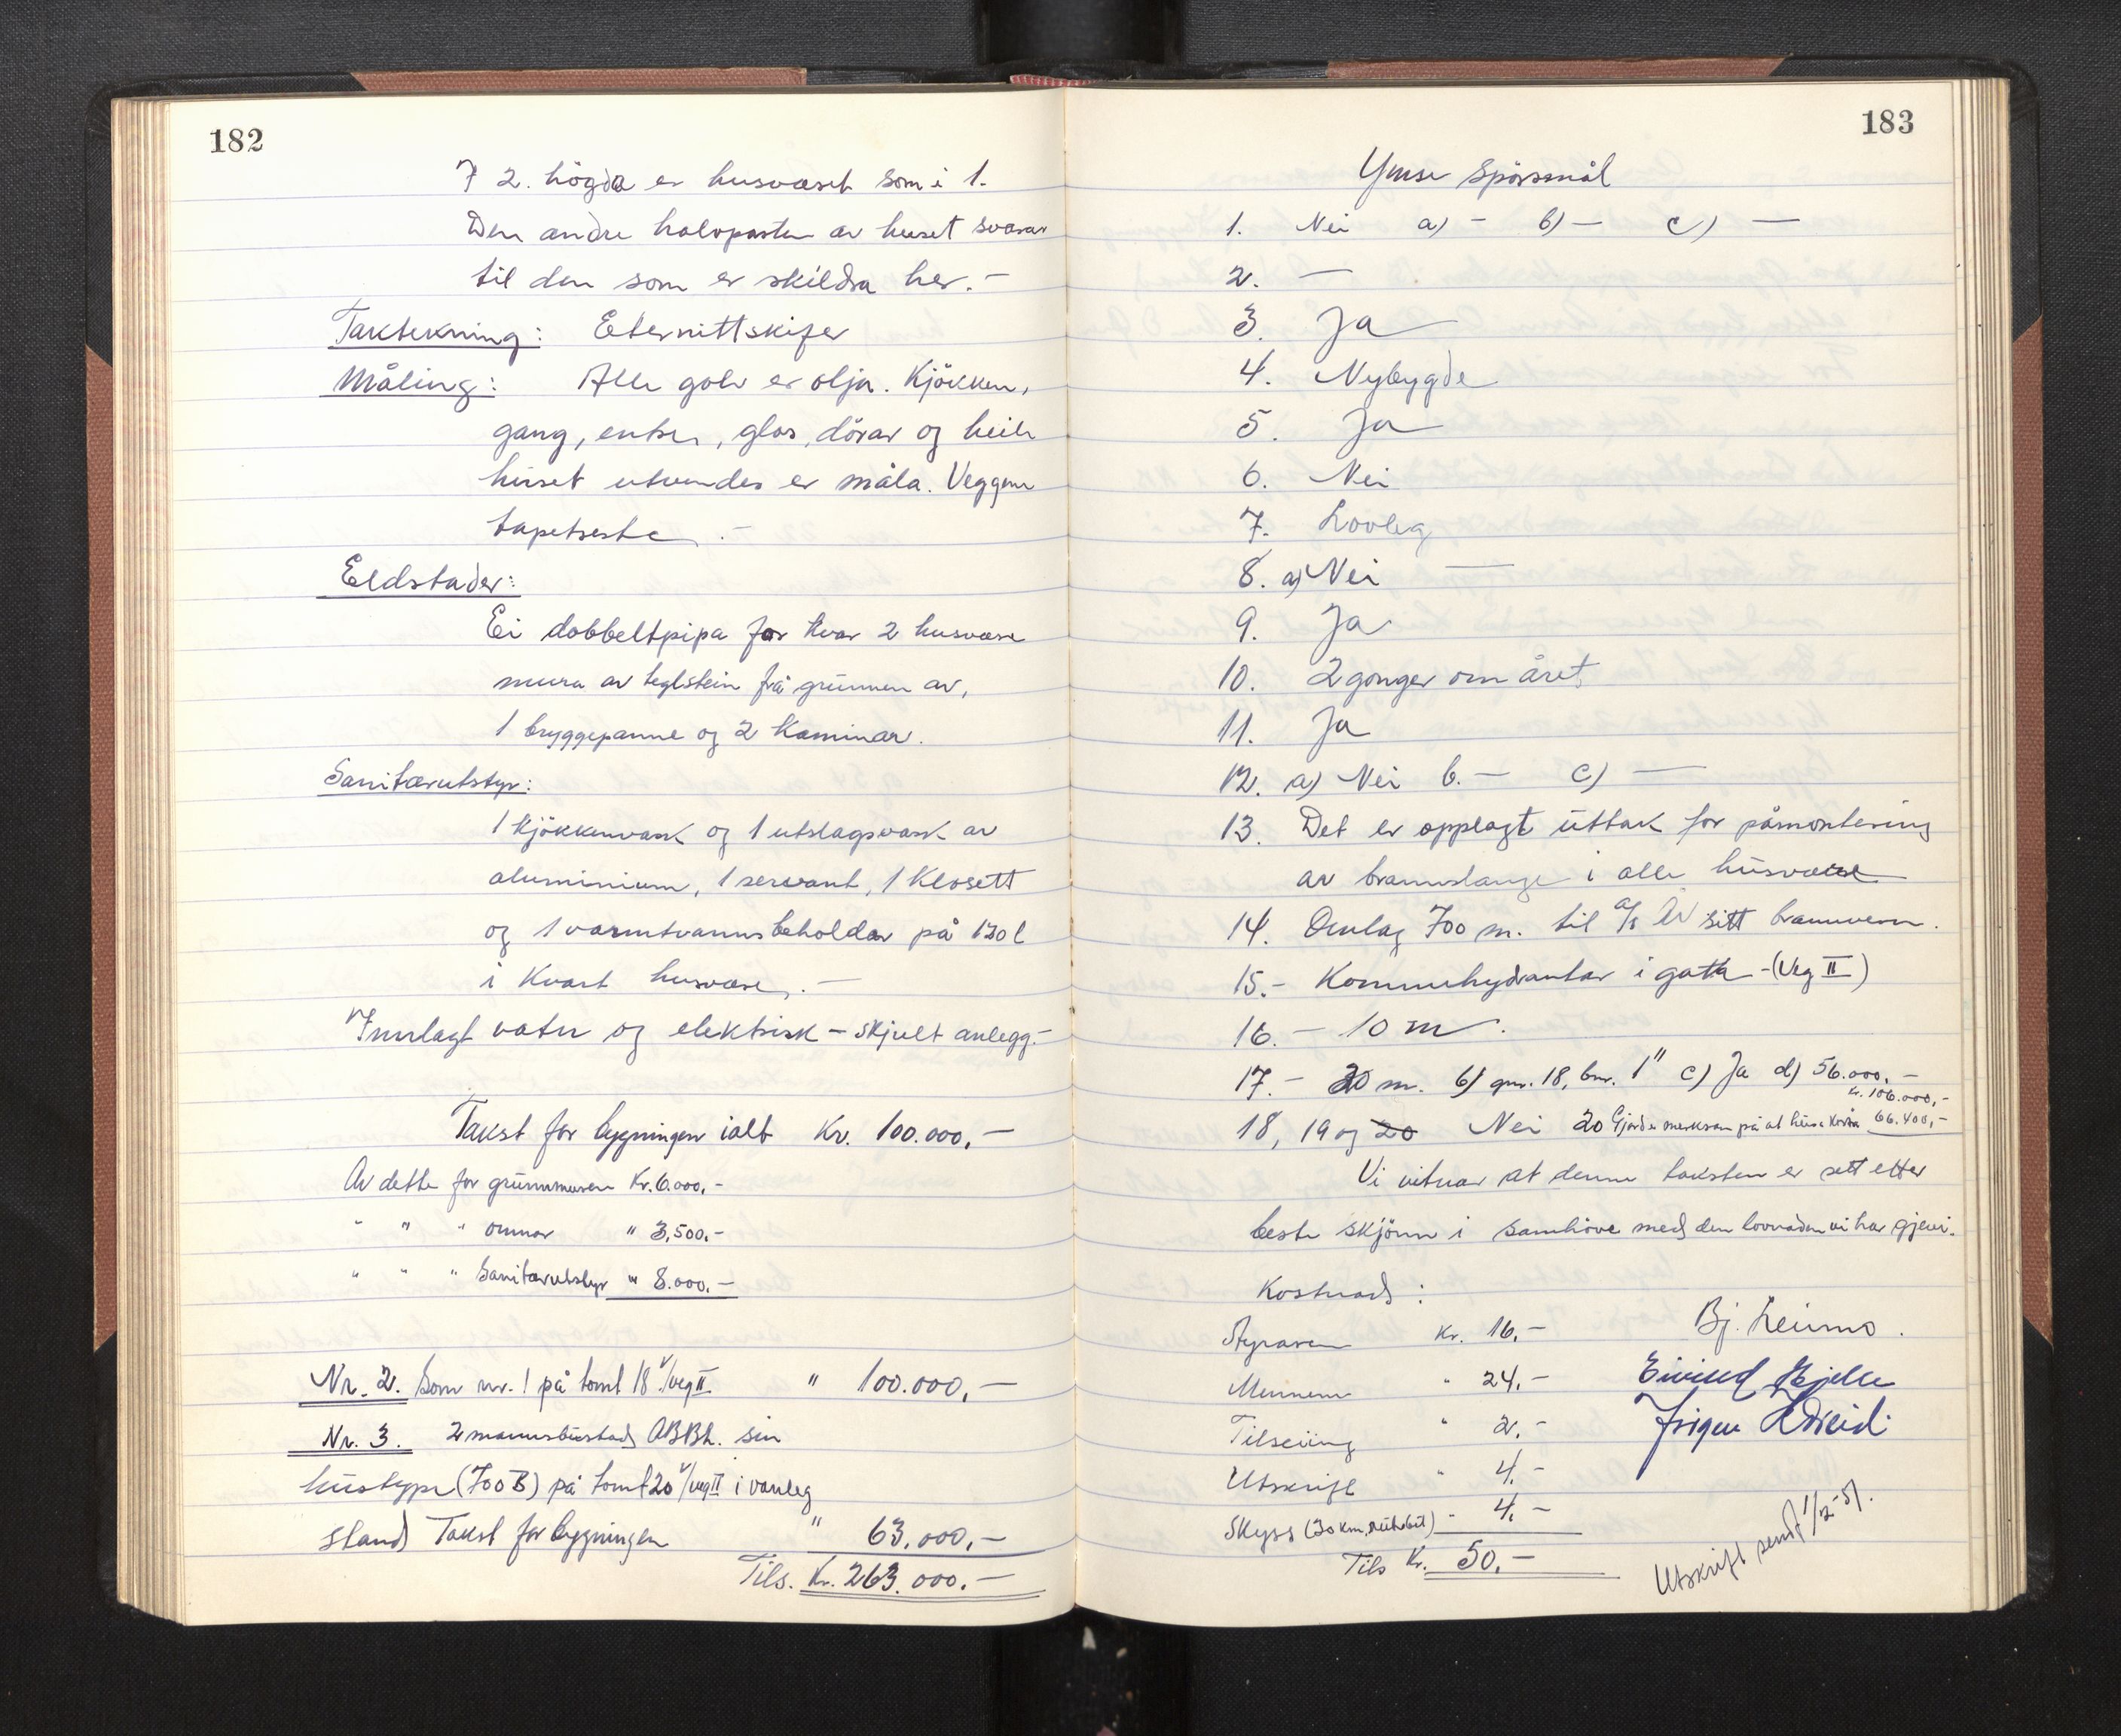 182
I 2. högda er husværet som i 1.
Den andre halvparten av huset svarar
til den som er skildra her. -
Taktekning: Eternittskifer
Måling: Alle golv er olja. Kjökken,
gang, entre, glas, dörar og heile
huset utvendes er måla. Veggene
tapetserte. -
Eldstader:
Ei dobbeltpipa for kvar 2 husvære
mura av teglstein frå grunnen av,
1 bryggepanne og 2 kaminar.
Sanitærutstyr:
1 kjökkenvask og 1 utslagsvask av
aluminium, 1 servant, 1 klosett
og 1 varmtvannsbeholdar på 120 l
i kvart husvære. -
Innlagt vatn og elektrisk - skjult anlegg. -
Takst for bygningen ialt Kr. 100.000,-
Av dette for grunnmuren Kr. 6.000,-
" " " omnar " 3,500.-
" " " Sanitærutstyr " 8.000.-
Nr. 2. Som nr. 1 på tomt 18 v/veg II. " 100.000,-
Nr. 3. 2 mannsbustad ABBL. sin
hustype (700 B) på tomt 20 v/veg II i vanleg
stand Takst for bygningen " 63.000,-
Tils. Kr. 263.000.-
183
Ymse Spörsmål
1. Nei a) - b) - c) -
2. -
3. Ja
4. Nybygde
5. Ja
6. Nei
7. Lovleg
8. a) Nei -
9. Ja
10. 2 gonger om året
11. Ja
12. a) Nei b. - c) -
13. Det er opplagt uttak for påmontering
av brannslange i alle husvære
14. Omlag 700 m. til a/s ÅV sitt brannvern.
15. - Kommunhydrantar i gata - (Veg II)
16. - 10 m.
17. - 20 m. b) gnr. 18, bnr. 1" c) Ja d) 56.000,-
Kr. 106.000,-
18, 19 og 20 Nei 20 Gjord merksam på at husa kosta 66.400,-
Vi vitnar at denne taksten er sett etter
beste skjönn i samhöve med den lovnaden vi har gjevi.
Kostnad:
Styraren Kr. 16,- Bj. Leirmo.
Mennene " 24.- Eivind Hjelle
Tilseiing " 2.-
Utskrift " 4.-
Skyss (20 km, rutebil) - 4.-
Tils Kr. 50.-
Utskrift sendt 1/2-51.